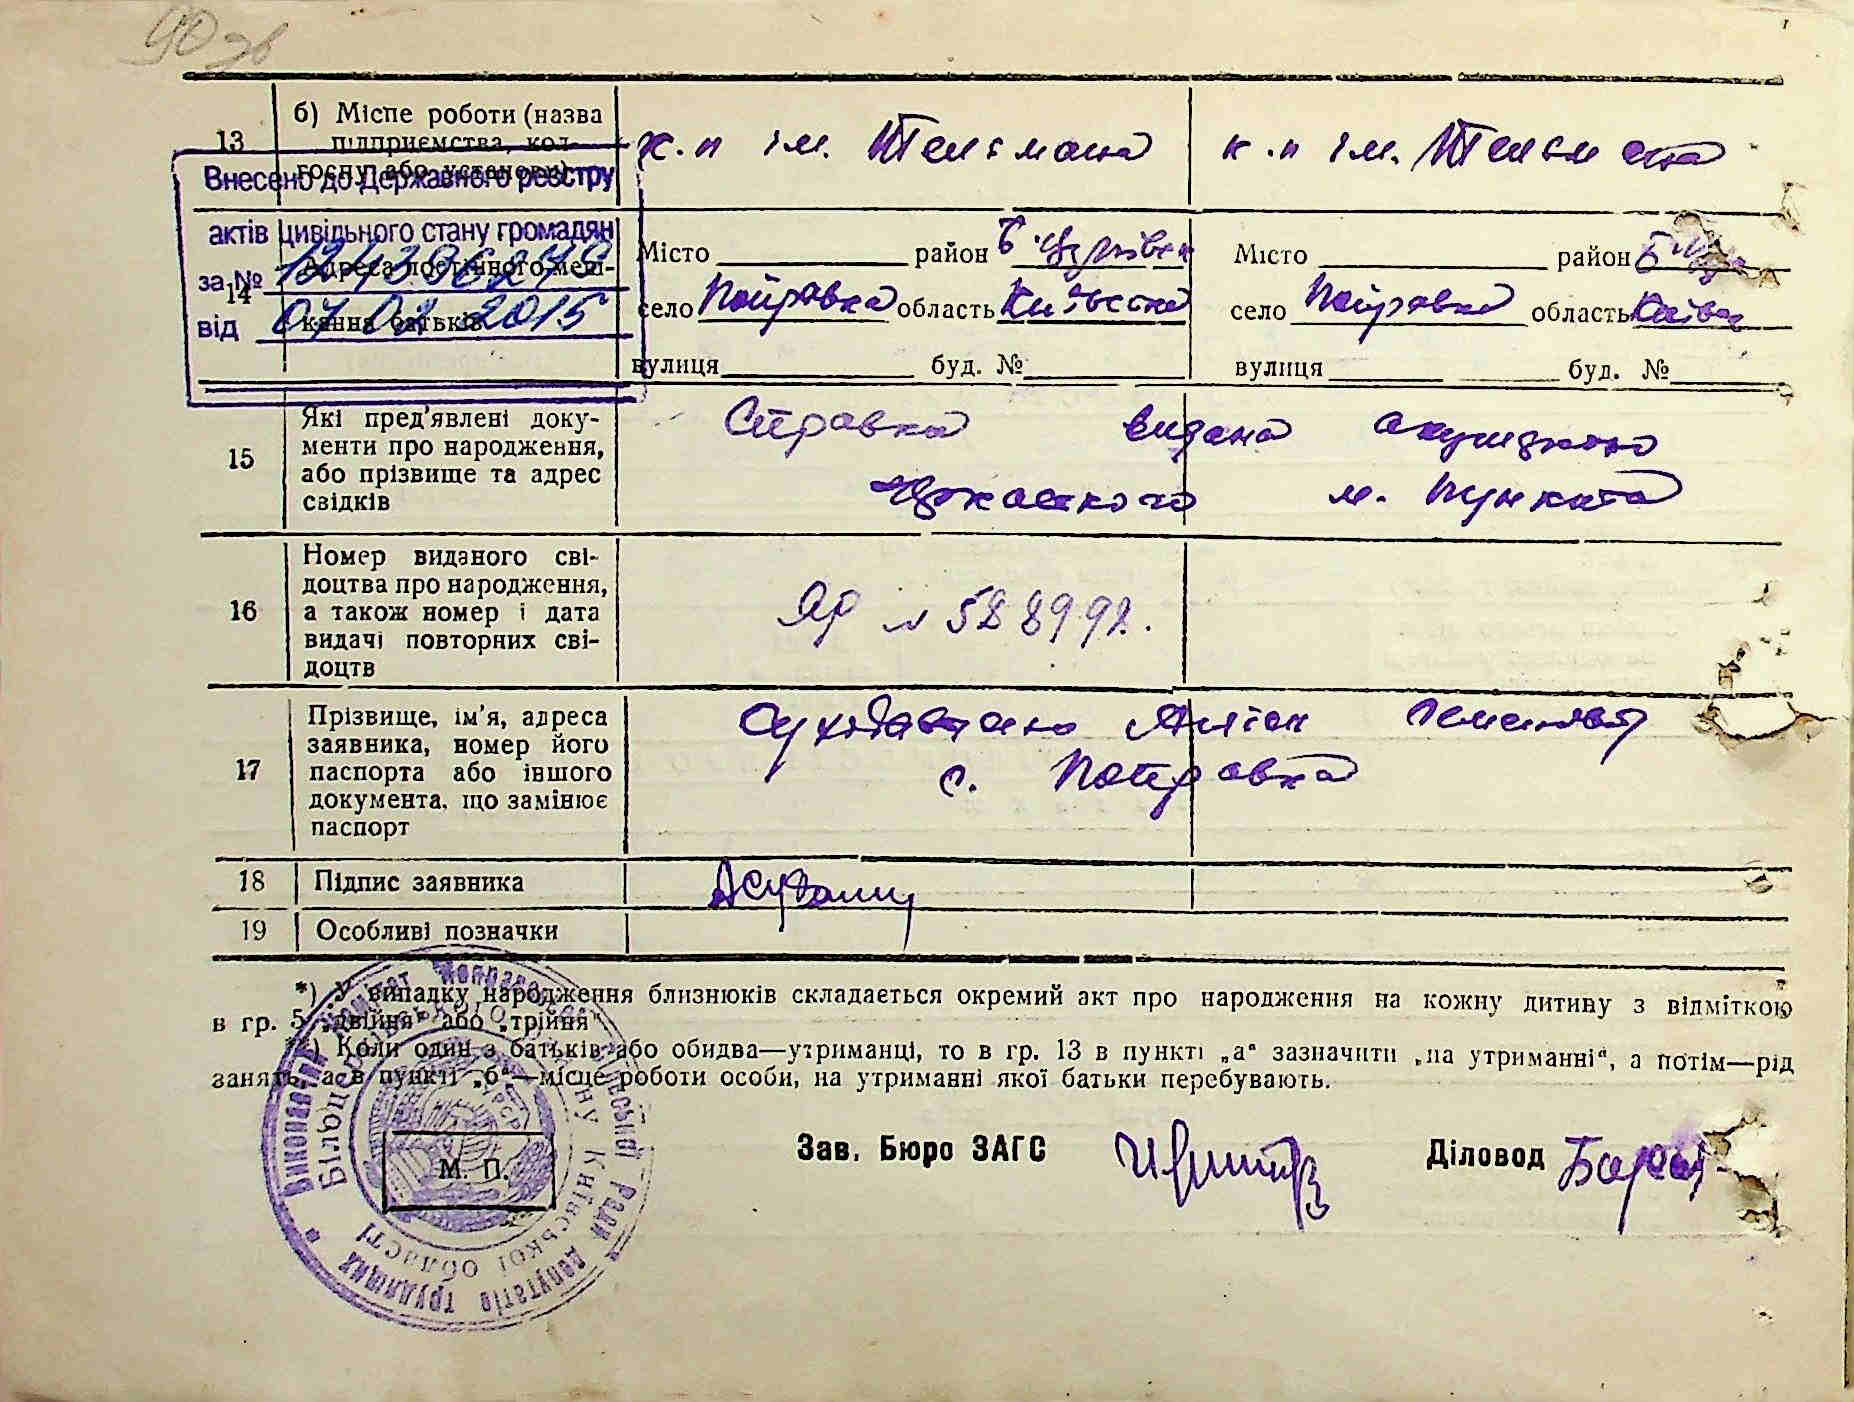 90 зв
13
б) Місце роботи (назва
підприємства, кол-
госпу або установи)
к.п ім. Тельмана
к.п ім. Тельмана
Внесено до Державного реєстру
актів цивільного стану громадян
за №
від 2015
14
Адреса постійного меш-
кання батьків
Місто район Б Церківськ
село Потіївка область Київська
вулиця буд. №
Місто район Б
село область Київ
вулиця буд. №
15
Які пред'явлені доку-
менти про народження,
або прізвище та адрес
свідків
Справка видана акушеркою
м. пункта
16
Номер виданого сві-
доцтва про народження,
а також номер і дата
видачі повторних сві-
доцтв
ЯР № 528992.
17
Прізвище, ім'я, адреса
заявника, номер його
паспорта або іншого
документа, що замінює
паспорт
с.
18
Підпис заявника
19
Особливі позначки
*) У випадку народження близнюків складається окремий акт про народження на кожну дитину з відміткою
в гр. 5 „двійня" або „трійня"
**) Коли один з батьків або обидва—утриманці, то в гр. 13 в пункті „а" зазначити „на утриманні", а потім—рід
занять, а в пункті „б"—місце роботи особи, на утриманні якої батьки перебувають.
Виконавчий комітет сільської Ради депутатів трудящих
Білоцерківського району Київської області
УРСР
М. П.
Зав. Бюро ЗАГС
Діловод